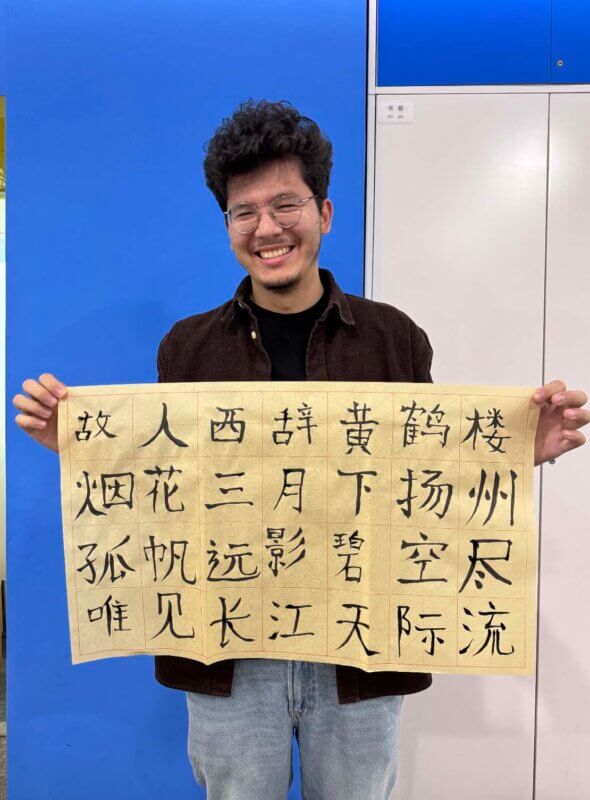 书柜
故人西辞黄鹤楼
烟花三月下扬州
孤帆远影碧空尽
唯见长江天际流